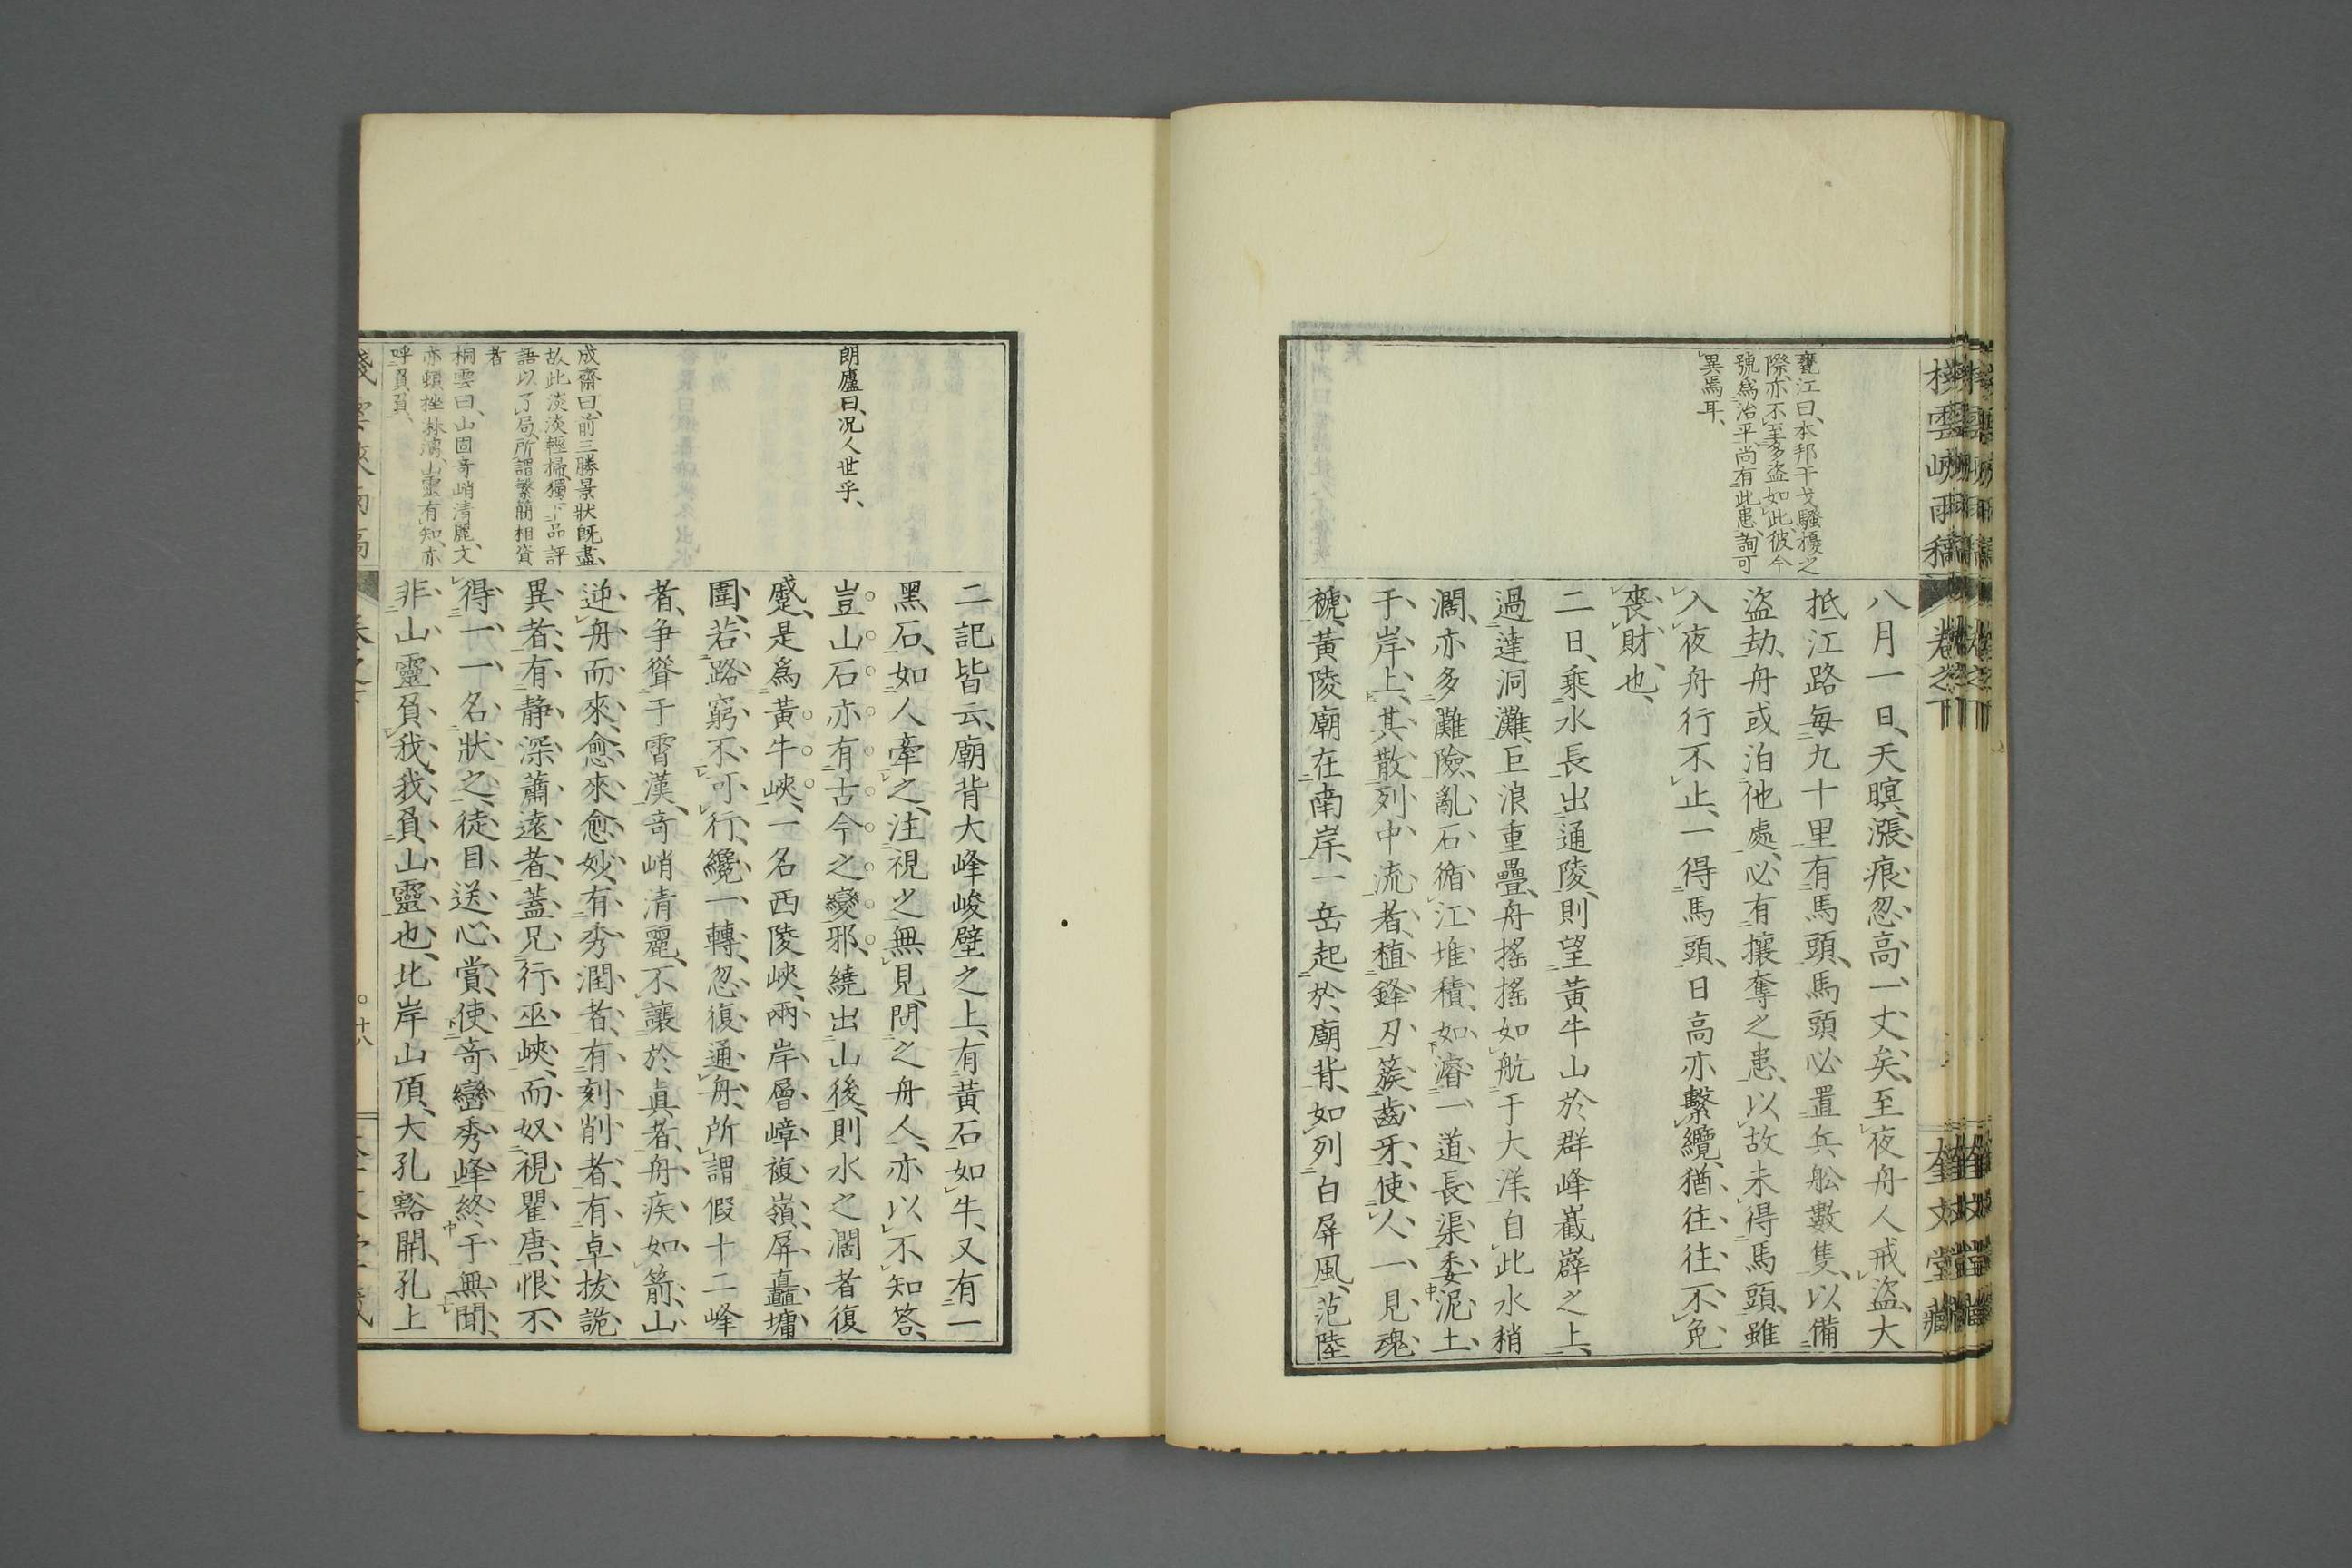 棧雲峽雨稿
卷之下
奎文堂藏
甕江曰、本邦干戈騷擾之
際、亦不至多盜如此、彼今
號爲治平尚有此患、詢可
異焉耳、
八月一日、天暝、漲痕忽高一丈矣、至夜舟人戒盜、大
抵江路每九十里有馬頭、馬頭必置兵舩數隻、以備
盜劫、舟或泊他處、必有攘奪之患、以故未得馬頭、雖
入夜舟行不止、一得馬頭、日高亦繫纜、猶往往不免
喪財也、
二日、乘水長出通陵、則望黃牛山於群峰嶻嶭之上、
過達洞灘、巨浪重疊、舟搖搖如航于大洋、自此水稍
濶、亦多灘險、亂石循江堆積、如濬一道長渠委泥土
于岸上、其散列中流者、植鋒刃簇齒牙、使人一見魂
褫、黃陵廟在南岸、一岳起於廟背、如列白屏風、范陸
朗廬曰、况人世乎、
成齋曰、前三勝景狀旣盡、
故此淡淡輕掃、獨下品評
語以了局、所謂繁簡相資
者
桐雲曰、山固奇峭清麗、文
亦頓挫淋漓、山靈有知、亦
呼負負、
二記皆云、廟背大峰峻壁之上、有黃石如牛、又有一
黑石、如人牽之、注視之無見、問之舟人、亦以不知答、
豈山石亦有古今之變邪、繞出山後、則水之濶者復
蹙、是爲黃牛峽、一名西陵峽、兩岸層嶂複嶺、屏矗墉
圍、若路窮不可行、纔一轉、忽復通舟、所謂假十二峰
者、爭聳于霄漢、奇峭清麗、不讓於眞者、舟疾如箭、山
逆舟而來、愈來愈妙、有秀潤者、有刻削者、有卓拔詭
異者、有静深蕭遠者、蓋兄行巫峽、而奴視瞿唐、恨不
得一一名狀之、徒目送心賞、使奇巒秀峰終于無聞、
非山靈負我、我負山靈也、北岸山頂、大孔豁開、孔上
十八